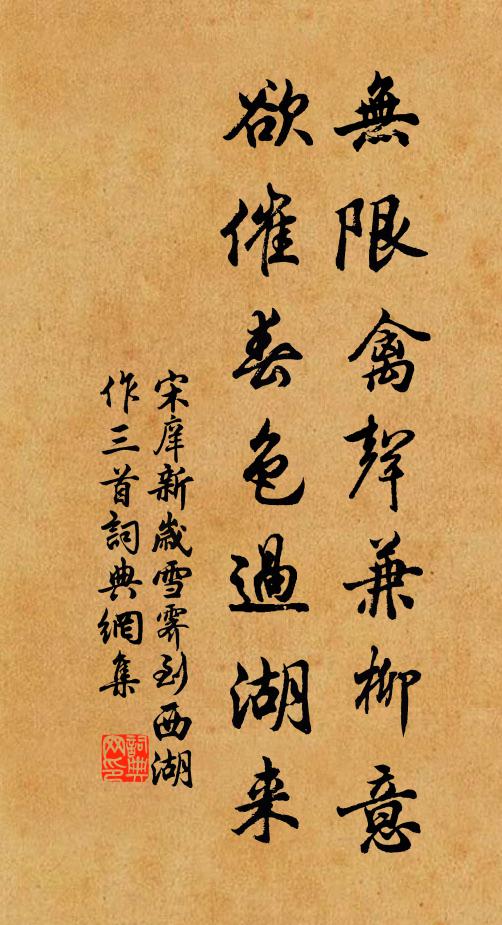 無限禽聲兼柳意
欲催春色過湖来
宋庠新歲雪霽到西湖
作三首詞典網集
詞典
网印